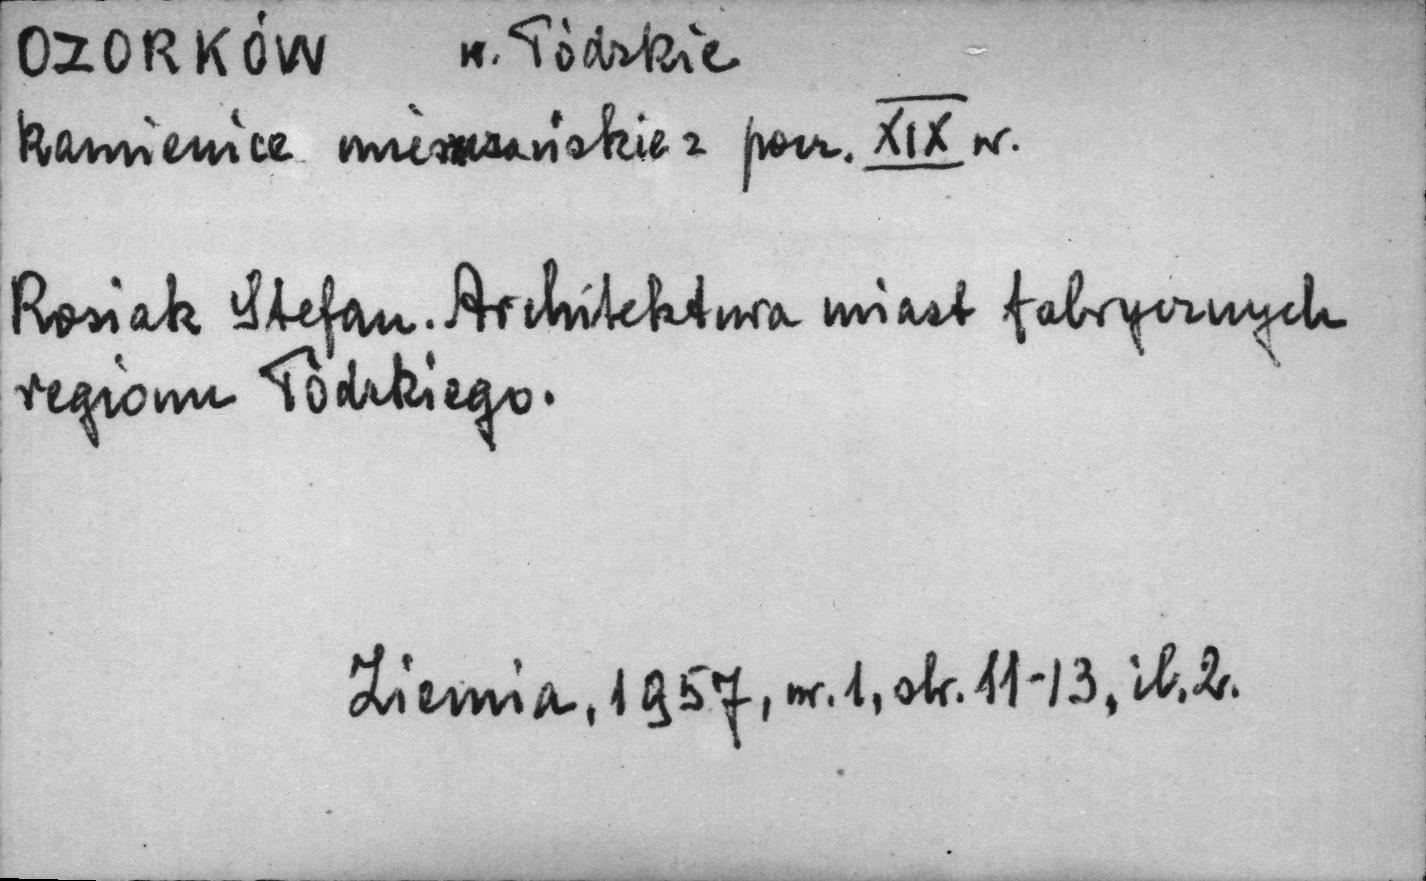 OZORKÓW w. Łódzkie
kamienice mieszczańskie z pocz. XIX w.
Rosiak Stefan. Architektura miast fabrycznych
regionu Łódzkiego.
Ziemia, 1957, nr. 1, str. 11-13, il. 2.